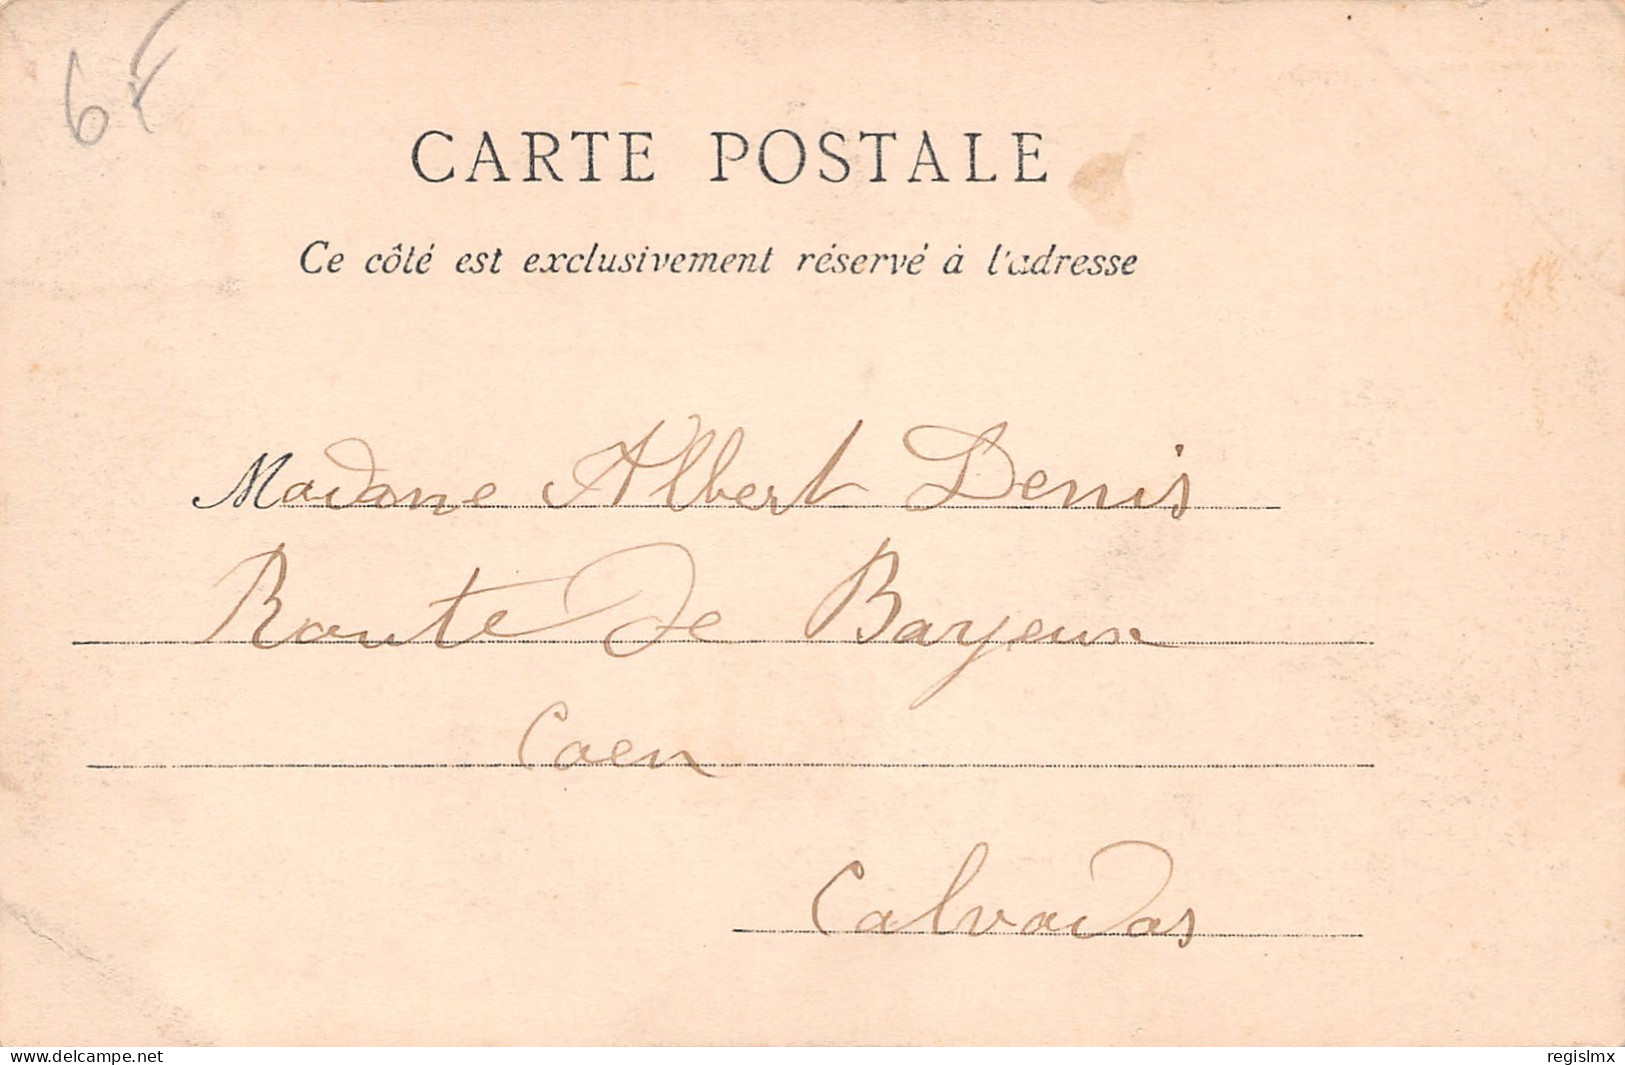 6F
CARTE POSTALE
Ce côté est exclusivement réservé à l'adresse
Madame Albert Denis
Route de Bayeux
Caen
Calvados
delcampe.net
regislmx